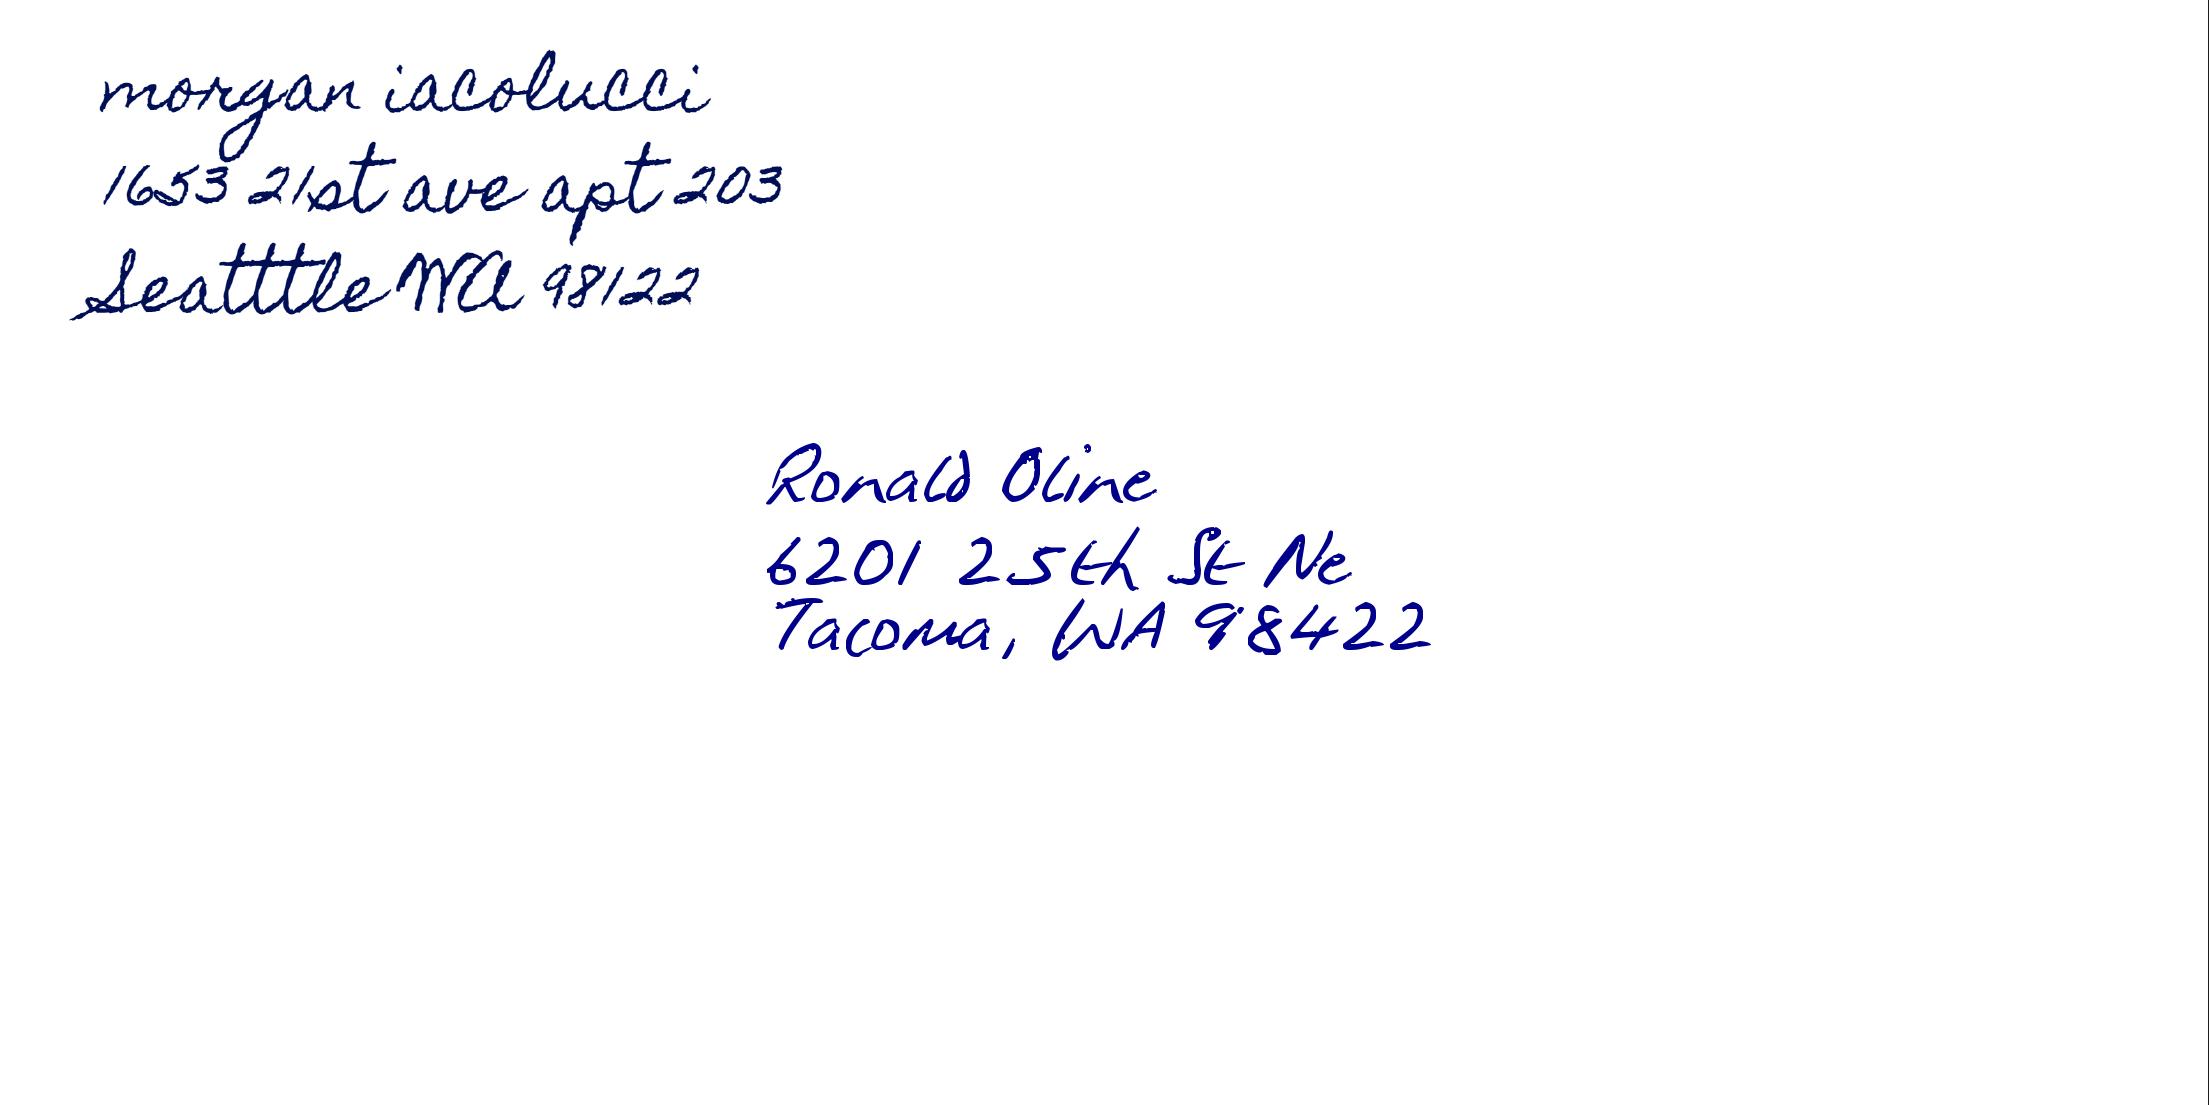 morgan iacolucci
1653 21st ave apt 203
Seatttle WA 98122
Ronald Oline
6201 25th St Ne
Tacoma, WA 98422